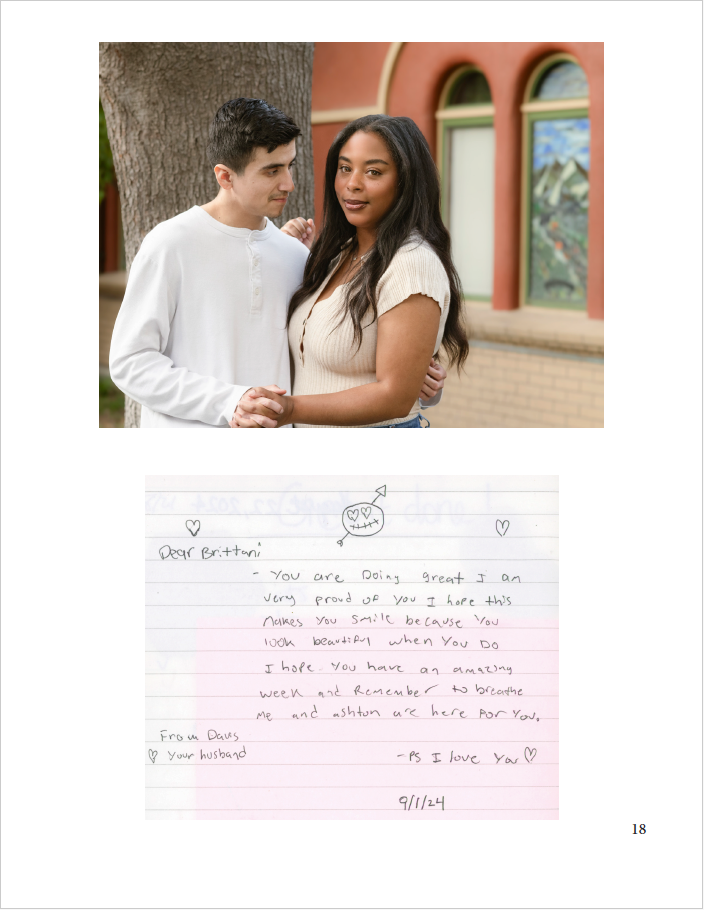 Dear Brittani
- You are Doing great I am
very proud of You I hope this
Makes You smile because You
look beautiful when You Do
I hope You have an amazing
week and Remember to breathe
Me and ashton are here for You.
From
♡ Your husband
-PS I love You ♡
9/1/24
18